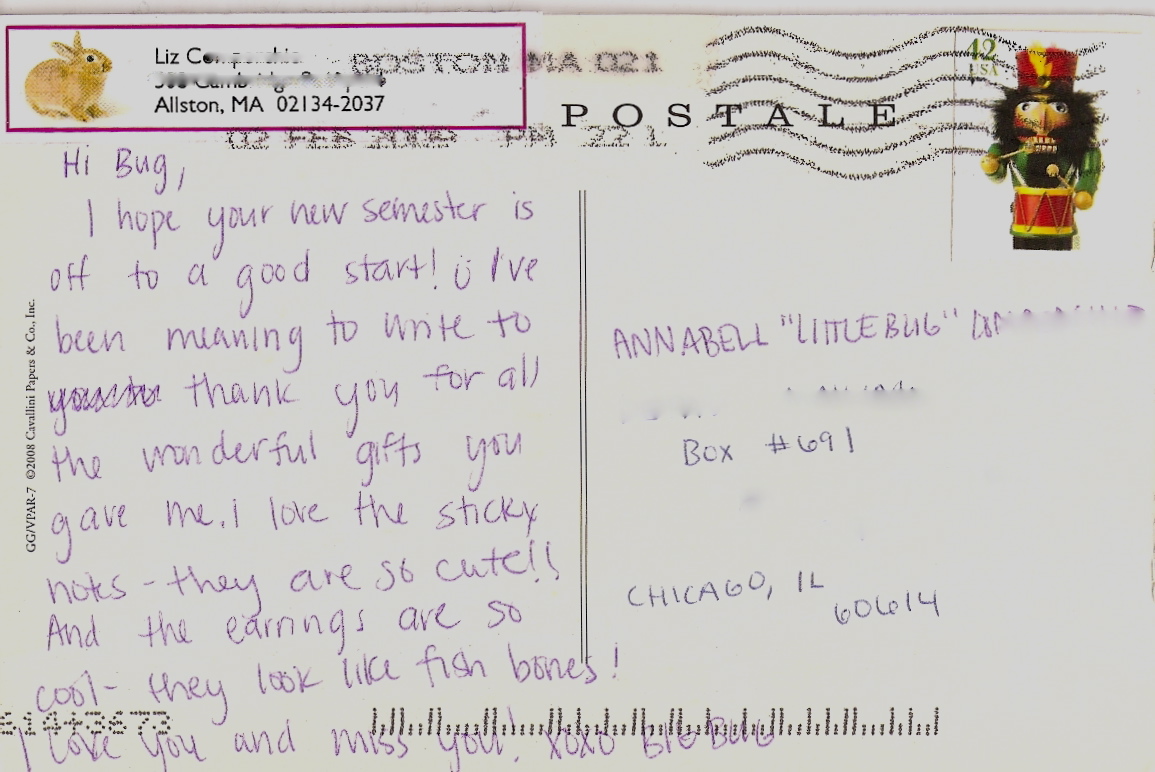 Liz
Allston, MA 02134-2037
BOSTON MA 021
POSTALE
42
USA
Hi Bug,
I hope your new semester is
off to a good start! ü I've
been meaning to write to
thank you for all
the wonderful gifts you
gave me. i love the sticky
notes - they are so cute!!
And the earrings are so
cool - they look like fish bones!
I love you and miss you! XOXO BIG BUG
GG/VPAR-7 ©2008 Cavallini Papers & Co., Inc.
ANNABELL "LITTLE BUG"
Box #691
CHICAGO, IL
60614